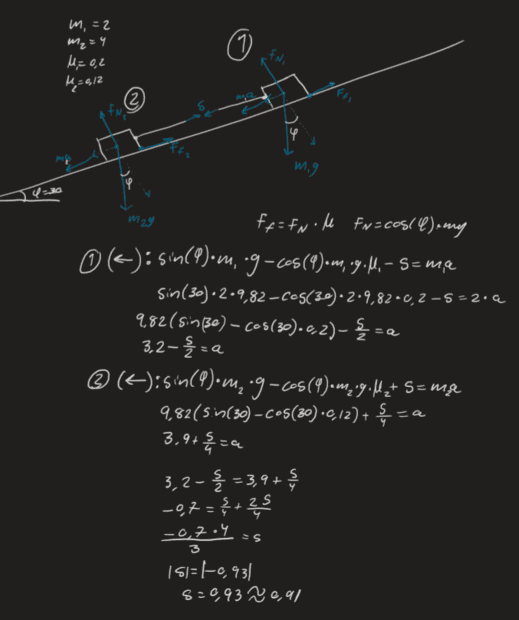 m₁ = 2
m₂ = 4
μ₁ = 0,2
μ₂ = 0,12
①
fN₁
S
ma
Ff₁
φ
m₁g
②
fN₂
ma
Ff₂
φ
φ=30
m₂g
Ff = FN · μ FN = cos(φ) · mg
① (←): sin(φ) · m₁ · g – cos(φ) · m₁ · g · μ₁ – S = m₁a
sin(30) · 2 · 9,82 – cos(30) · 2 · 9,82 · 0,2 – S = 2 · a
9,82(sin(30) – cos(30) · 0,2) – S/2 = a
3,2 – S/2 = a
② (←): sin(φ) · m₂ · g – cos(φ) · m₂ · g · μ₂ + S = m₂a
9,82(sin(30) – cos(30) · 0,12) + S/4 = a
3,9 + S/4 = a
3,2 – S/2 = 3,9 + S/4
–0,7 = S/4 + 2S/4
–0,7 · 4/3 = S
|S| = |–0,93|
S = 0,93 ≈ 0,91